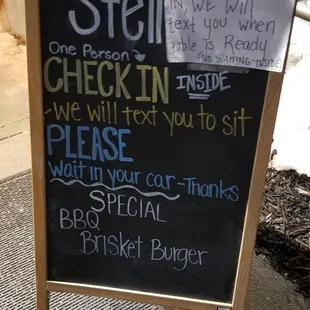 IN, WE will
text you when
table is Ready
(NO WAITING INSIDE)
One Person
CHECK IN INSIDE
-We will text you to sit
PLEASE
Wait in your car - Thanks
SPECIAL
BBQ
Brisket Burger